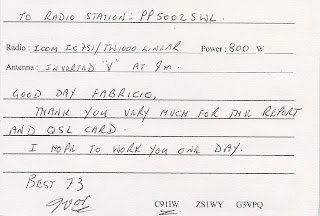 TO RADIO STATION: PP5002SWL
Radio : ICOM IC751/TW1000 LINEAR Power : 800 W
Antenna : INVERTED "V" AT 9m.
GOOD DAY FABRICIO,
THANK YOU VERY MUCH FOR THE REPORT
AND QSL CARD.
I HOPE TO WORK YOU ONE DAY.
BEST 73
C91IW ZS1WY G3VPQ